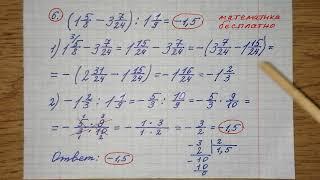 6. (1 5/8 - 3 7/24) : 1 1/9 = -1,5
математика
бесплатно
1) 1 5/8 - 3 7/24 = 1 15/24 - 3 7/24 = -(3 7/24 - 1 15/24) =
= -(2 31/24 - 1 15/24) = -1 16/24 = -1 2/3
2) -1 2/3 : 1 1/9 = -5/3 : 10/9 = -5/3 · 9/10 =
= -5·9/3·10 = -1·3/1·2 = -3/2 = -1,5
Ответ: -1,5
-3 | 2
2 | 1,5
-10
10
0